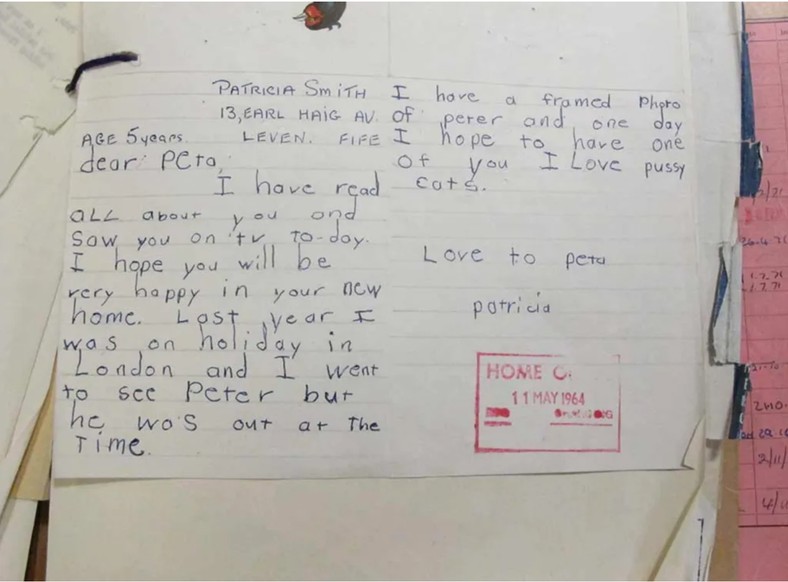 PATRICIA SMITH
13, EARL HAIG AV.
AGE 5 years. LEVEN. FIFE
dear: Peta,
I have read
all about you and
Saw you on tv to-day.
I hope you will be
very happy in your new
home. Last year I
was on holiday in
London and I went
to see Peter but
he was out at the
Time.
I have a framed Photo
of peter and one day
I hope to have one
of you I Love pussy
cats.
Love to peta
patricia
HOME O
11 MAY 1964